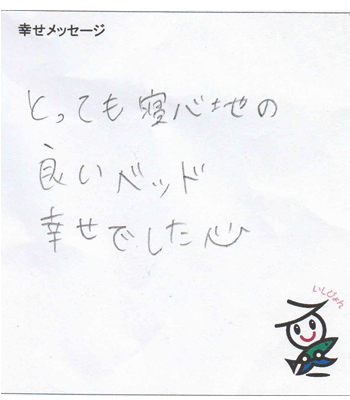 幸せメッセージ
とっても寝心地の
良いベッド
幸せでした心
いしぴょん